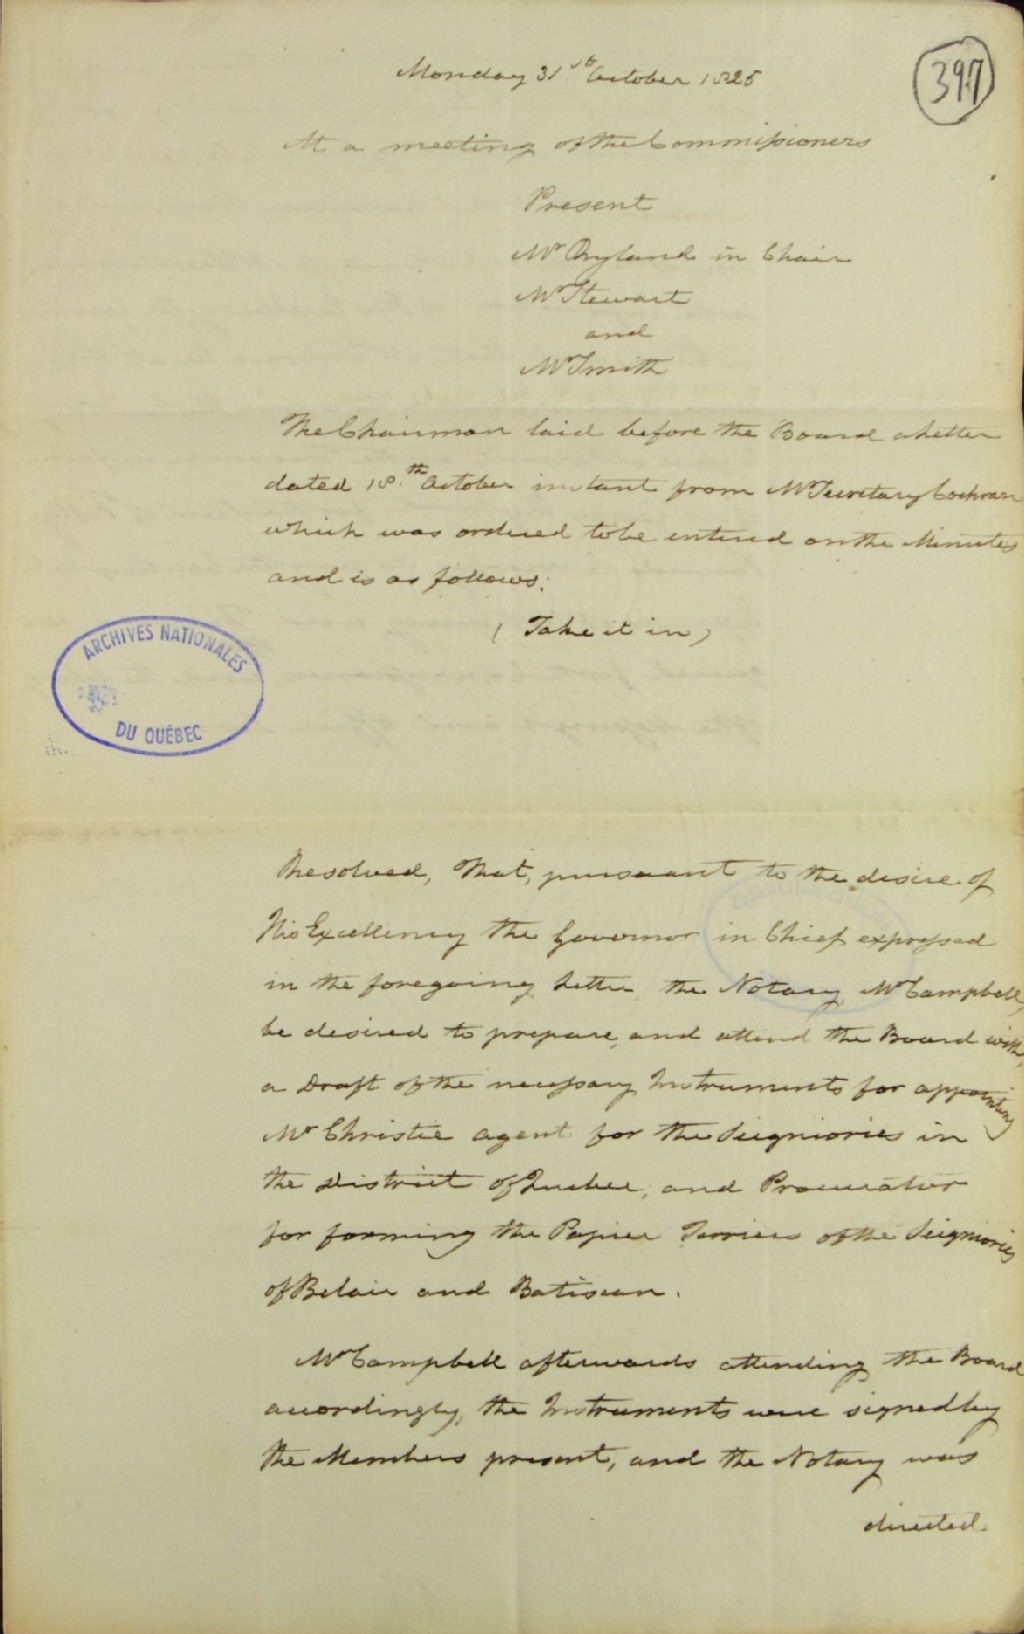 397
Monday 31st October 1825
At a meeting of the Commissioners
Present
Mr Ryland in Chair
Mr Stewart
and
Mr Smith
The Chairman laid before the Board a Letter
dated 18th October instant from Mr Secretary Cochran
which was ordered to be entered on the Minutes
and is as follows:
(Take it in)
ARCHIVES NATIONALES
DU QUÉBEC
Resolved, That, pursuant to the desire of
His Excellency the Governor in Chief expressed
in the foregoing Letter, the Notary, Mr Campbell,
be desired to prepare, and attend the Board with,
a Draft of the necessary Instruments for appointing
Mr Christie Agent for the Seigniories in
the District of Quebec, and Procurator
for forming the Papier Terriers of the Seigniories
of Belair and Batiscan.
Mr Campbell afterwards attending the Board
accordingly, the Instruments were signed by
the Members present, and the Notary was
directed.